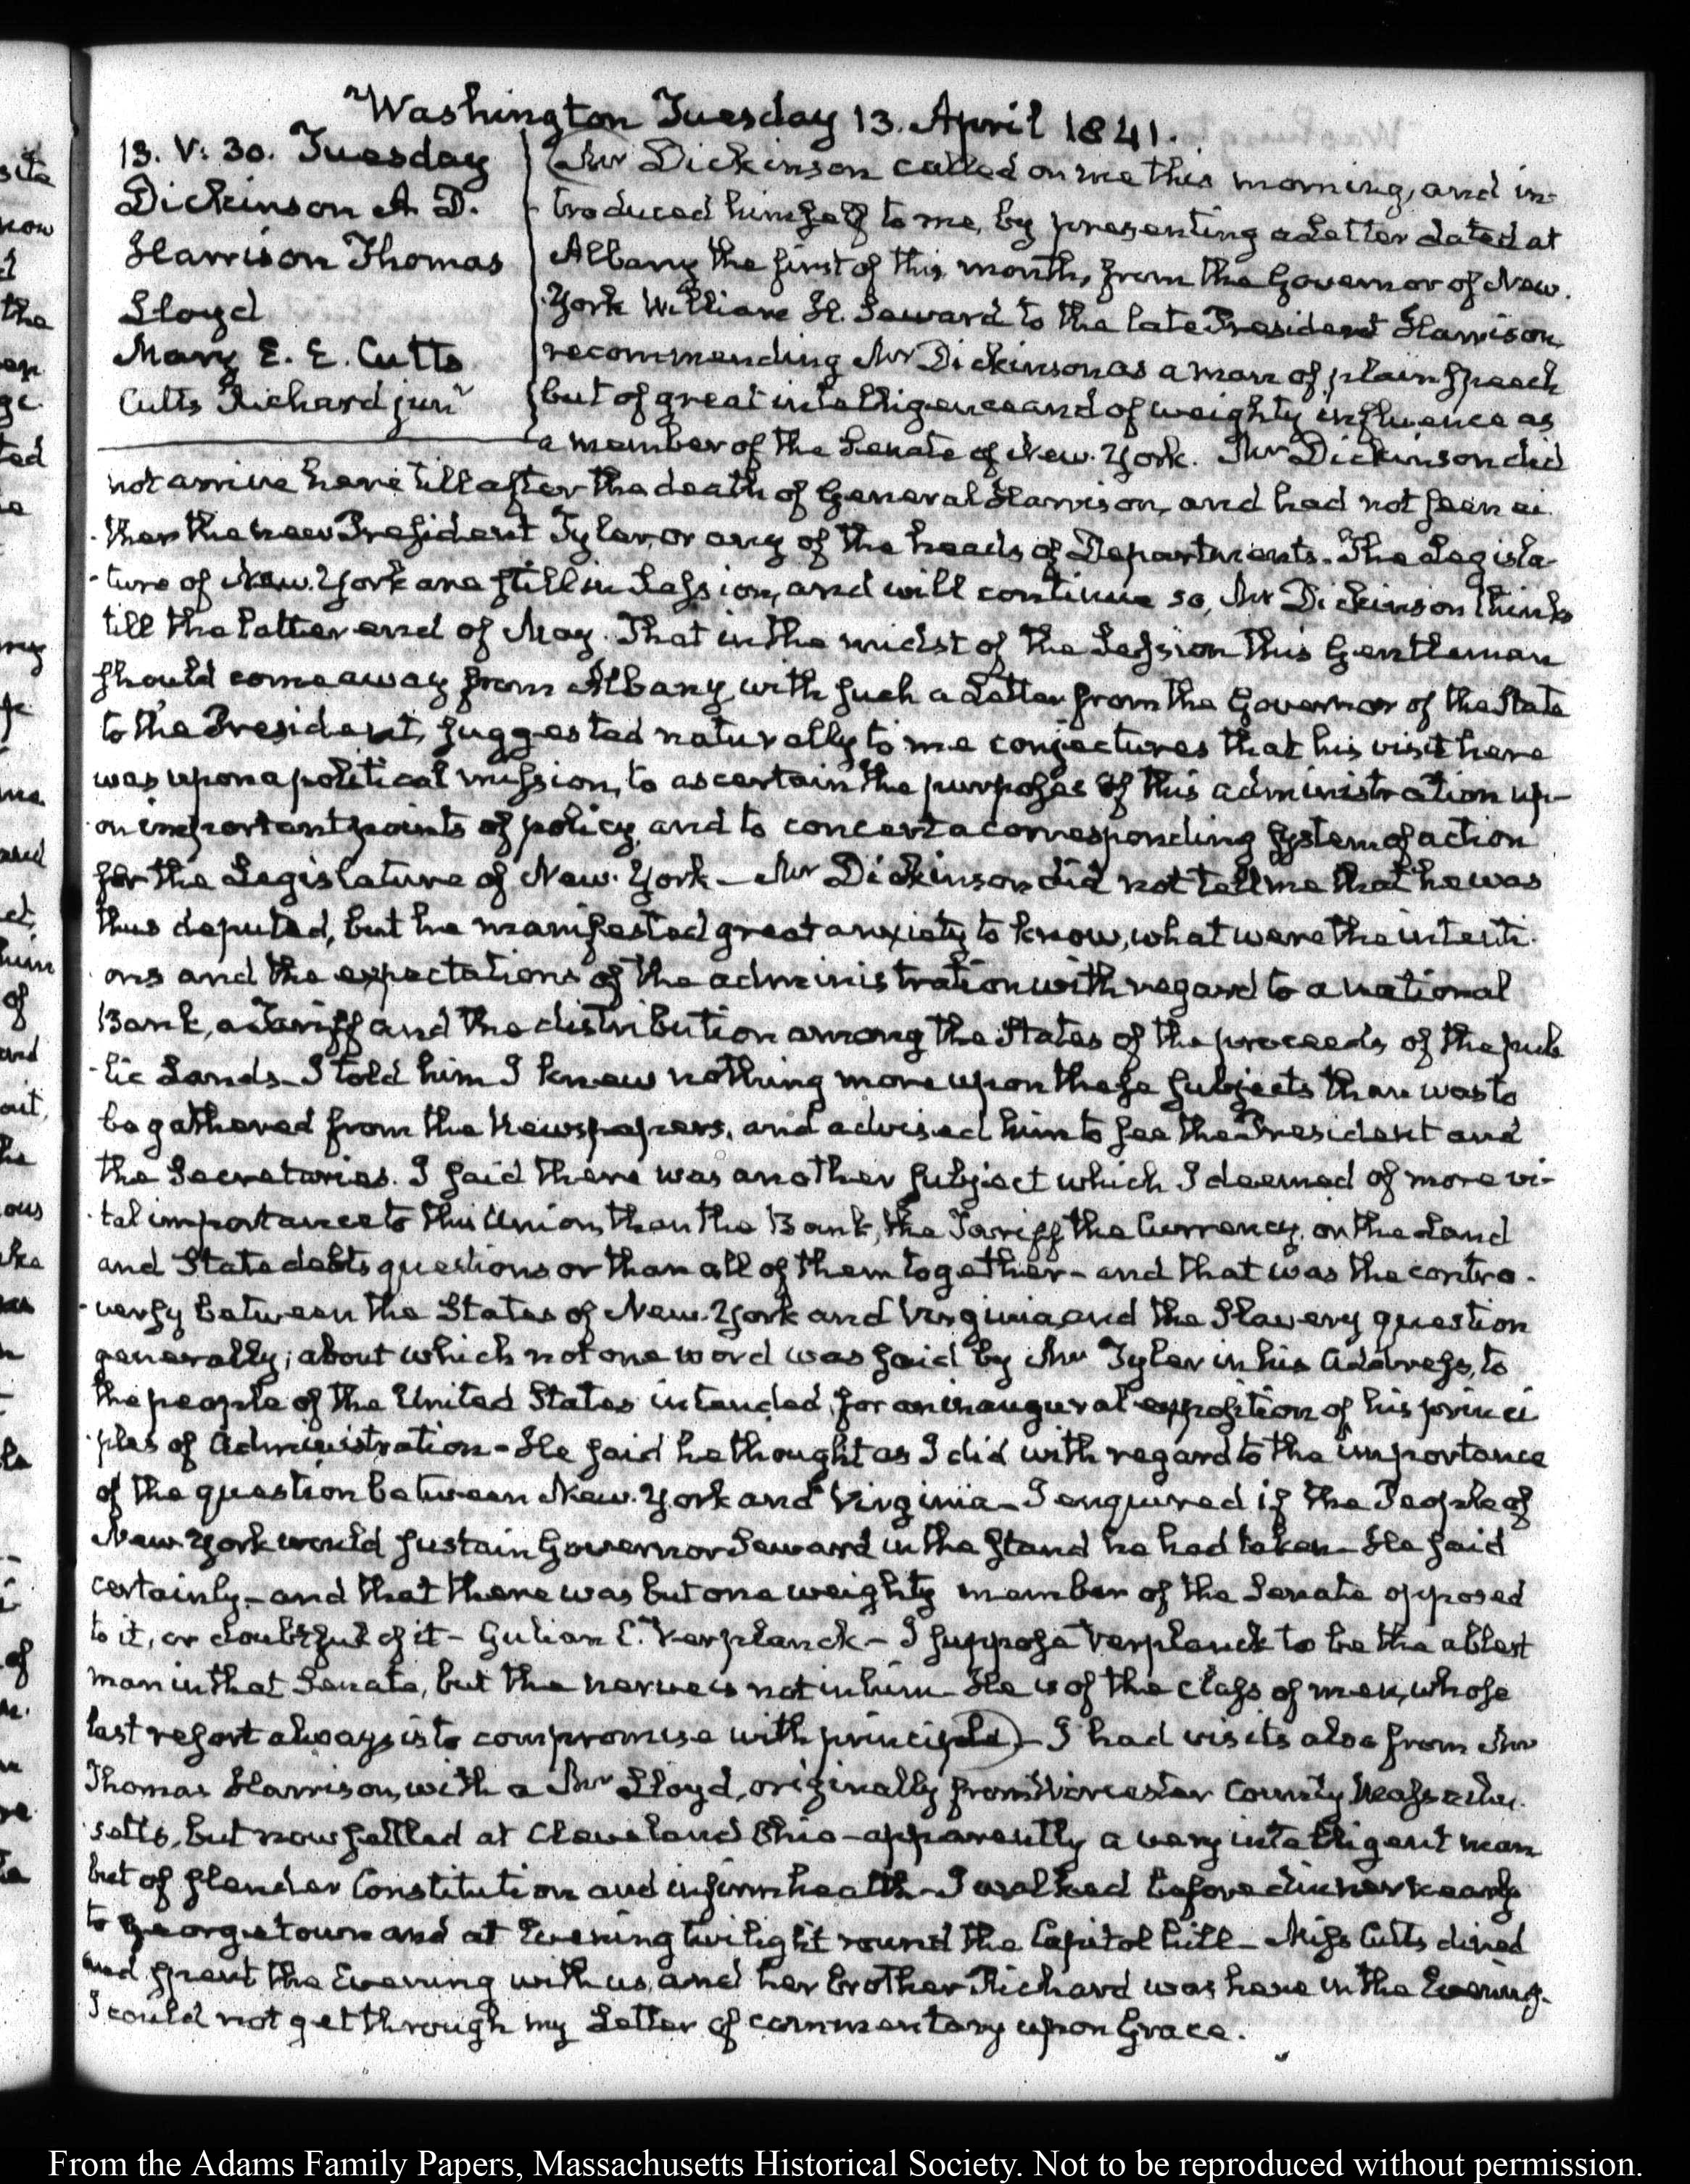 Washington Tuesday 13. April 1841.
13. V: 30. Tuesday
Dickinson A. D.
Harrison Thomas
Lloyd
Mary E. E. Cutts
Cutts Richard junr
Mr Dickinson called on me this morning, and in-
troduced himself to me, by presenting a Letter dated at
Albany the first of this month, from the Governor of New.
York William H. Seward to the late President Harrison,
recommending Mr Dickinson as a man of plain speech
but of great intelligence and of weighty influence as
a member of the Senate of New. York. Mr Dickinson did
not arrive here till after the death of General Harrison, and had not seen ei-
ther the new President Tyler, or any of the heads of Departments. The Legisla-
ture of New. York are still in Session, and will continue so, Mr Dickinson thinks
till the latter end of May. That in the midst of the Session this Gentleman
should come away from Albany, with such a Letter from the Governor of the State
to the President, suggested naturally to me conjectures that his visit here
was upon a political mission, to ascertain the purposes of this administration up-
on important points of policy, and to concert a corresponding system of action
for the Legislature of New. York — Mr Dickinson did not tell me that he was
thus deputed, but he manifested great anxiety to know, what were the intenti-
ons and the expectations of the administration with regard to a national
Bank, a Tariff and the distribution among the States of the proceeds of the pub
lic Lands — I told him I knew nothing more upon these subjects than was to
be gathered from the Newspapers, and advised him to see the President and
the Secretaries. I said there was another subject which I deemed of more vi-
tal importance to this Union, than the Bank, the Tariff the Currency, or the Land
and State debts questions or than all of them together — and that was the contro-
versy between the States of New. York and Virginia, and the Slavery question
generally; about which not one word was said by Mr Tyler in his Address, to
the people of the United States intended, for an inaugural exposition of his princi
ples of administration — He said he thought as I did with regard to the importance
of the question between New. York and Virginia — I enquired if the People of
New. York would sustain Governor Seward in the stand he had taken — He said
certainly — and that there was but one weighty member of the Senate opposed
to it, or doubtful of it — Gulian C. Verplanck — I suppose Verplanck to be the ablest
man in that Senate, but the nerve is not in him — He is of the class of men, whose
last resort always is to compromise with principle — I had visits also from Mr
Thomas Harrison, with a Mr Lloyd, originally from Worcester County, Massachu-
setts, but now settled at Cleveland Ohio — apparently a very intelligent man
but of slender Constitution and infirm health — I walked before dinner nearly
to Georgetown and at Evening twilight round the Capitol hill — Miss Cutts dined
and spent the Evening with us, and her brother Richard was here in the Evening.
I could not get through my Letter of commentary upon Grace.
From the Adams Family Papers, Massachusetts Historical Society. Not to be reproduced without permission.